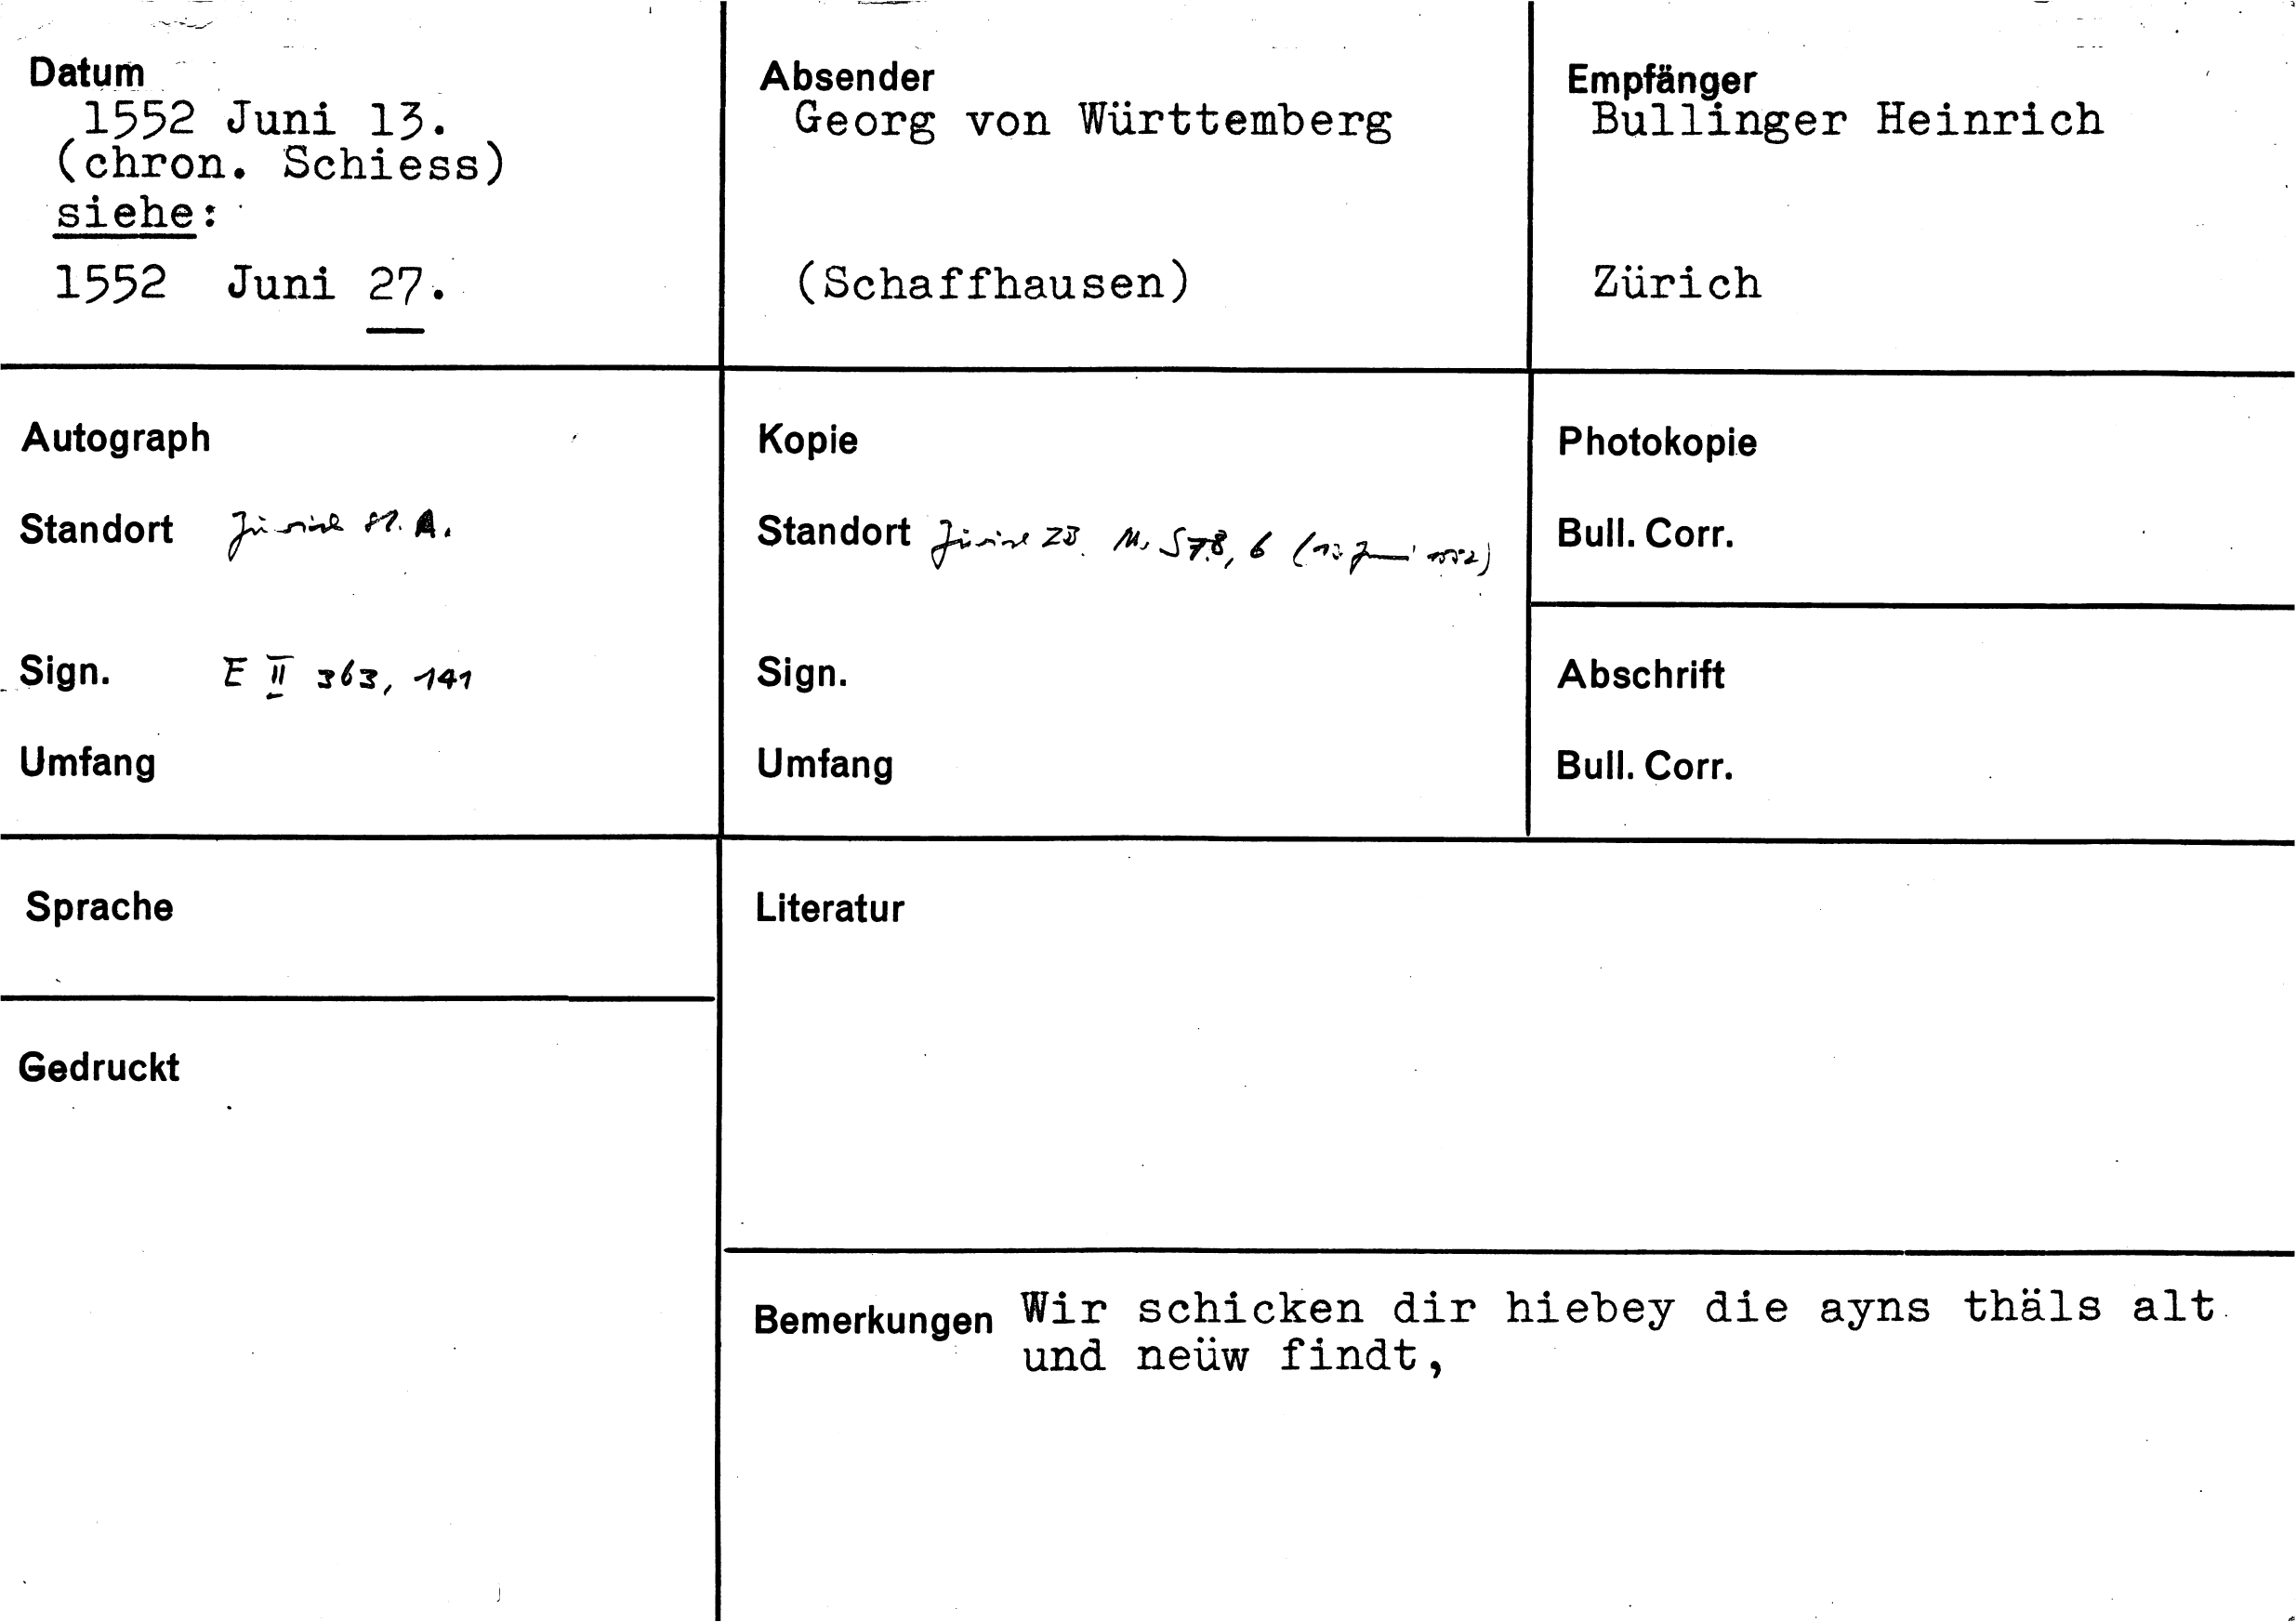 Datum
1552 Juni 13.
(chron. Schiess)
siehe:
1552 Juni 27.
Absender
Georg von Württemberg
(Schaffhausen)
Empfänger
Bullinger Heinrich
Zürich
Autograph
Standort Zürich St. A.
Sign. E II 363, 141
Umfang
Kopie
Standort Zürich ZB. Ms S 78, 6 (13 Juni 1552)
Sign.
Umfang
Photokopie
Bull. Corr.
Abschrift
Bull. Corr.
Sprache
Gedruckt
Literatur
Bemerkungen Wir schicken dir hiebey die ayns thäls alt
und neüw findt,